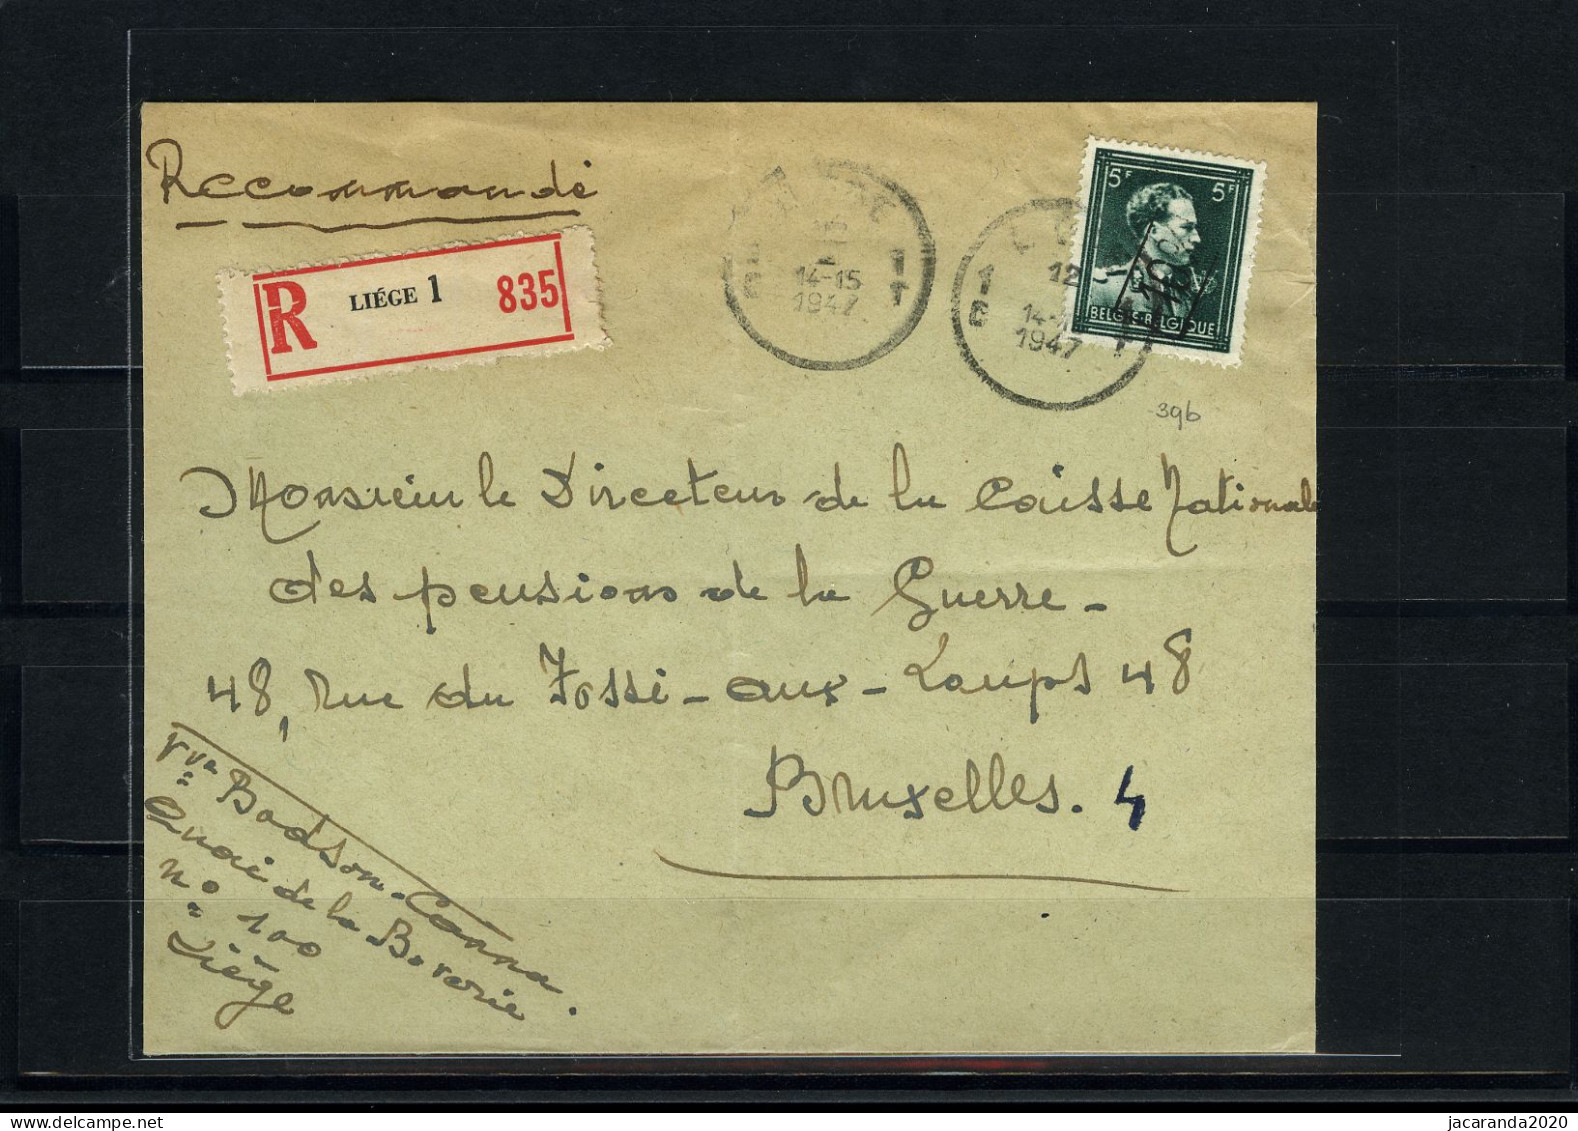 Recommandé
R LIÉGE 1 835
14-15
1947
1 12 1
14-
1947
5F 5F
-10%
BELGIE-BELGIQUE
39b
Monsieur le Directeur de la Caisse Nationale
des pensions de la Guerre -
48, rue du Fossé-aux-Loups 48
Bruxelles. 4
Vve Bodson-Canna.
Quai de la Boverie
No 100
Liège
jacaranda2020